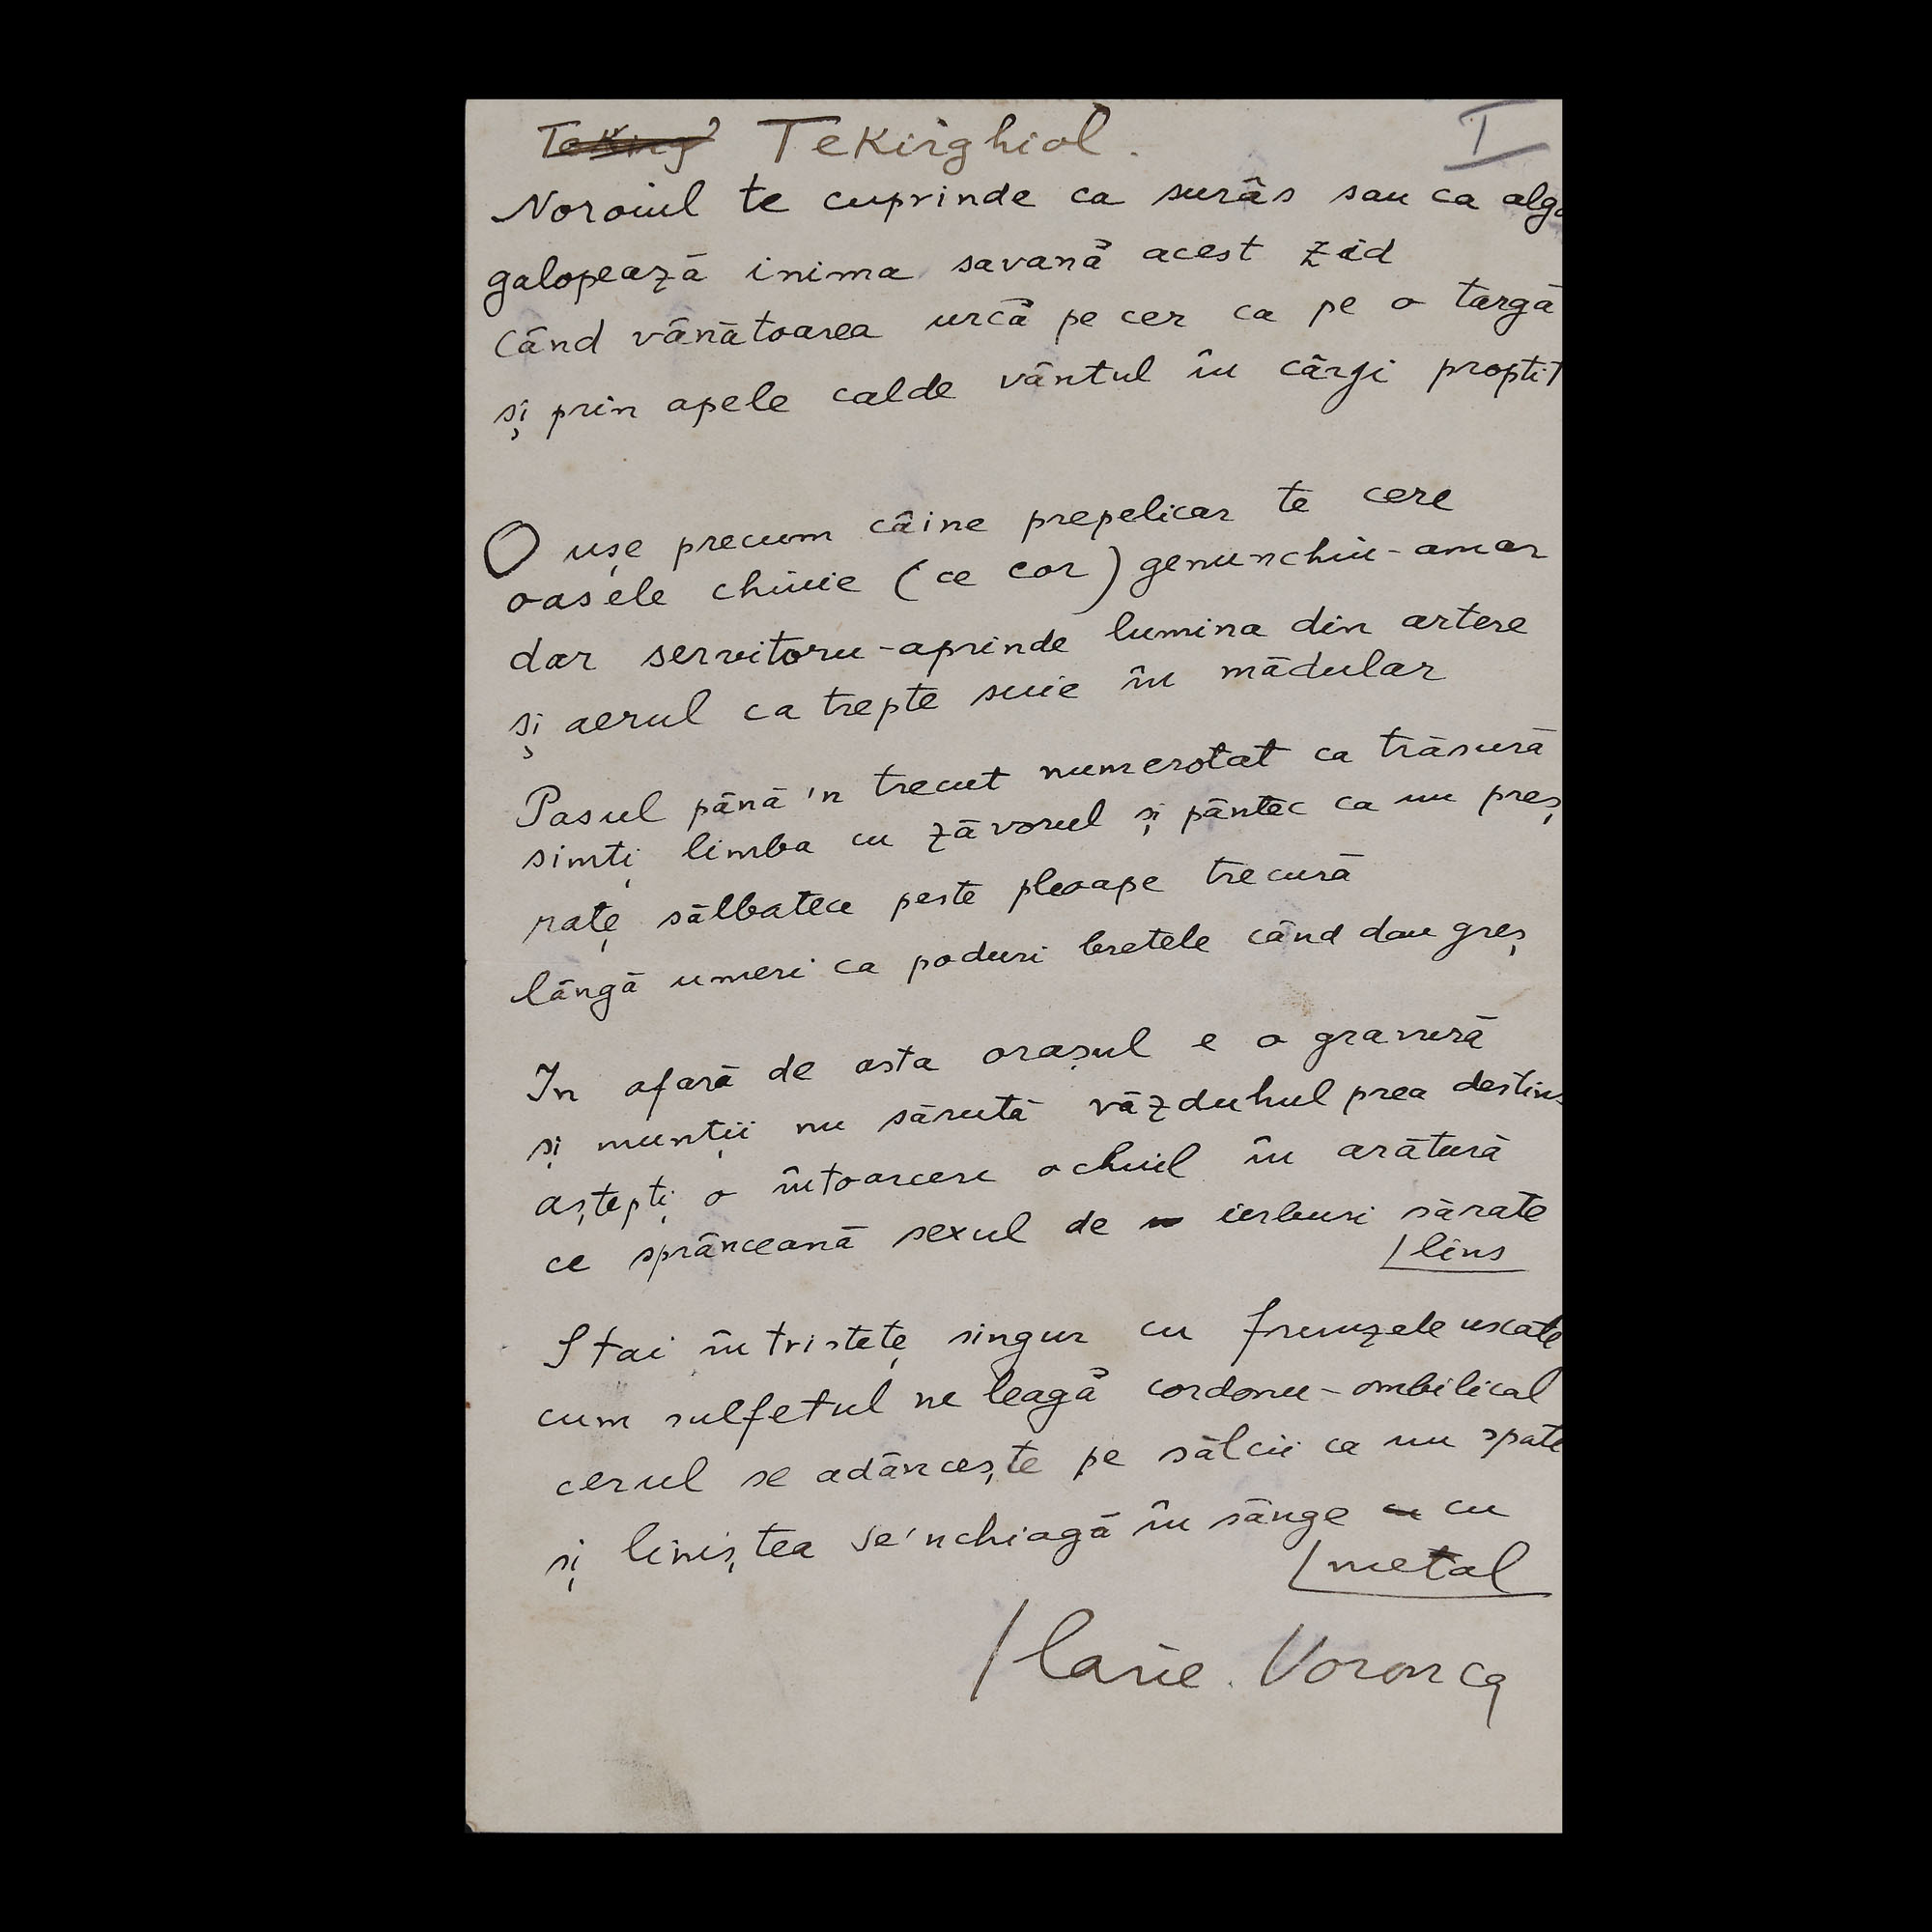 Teking Tekirghiol. I
Noroiul te cuprinde ca surâs sau ca alga
galopează inima savană acest zid
când vânătoarea urcă pe cer ca pe o targă
și prin apele calde vântul în cârji proptit
O ușe precum câine prepelicar te cere
oasele chiuie (ce cor) genunchiu-amar
dar servitoru-aprinde lumina din artere
și aerul ca trepte suie în mădular
Pasul până 'n trecut numerotat ca trăsură
simți limba cu zăvorul și pântec ca un preș
rațe sălbatece peste pleoape trecură
lângă umeri ca poduri bretele când dau greș
In afară de asta orașul e o gravură
și munții nu sărută văzduhul prea destins
aștepți o întoarcere ochiul în arătură
ce sprânceană sexul de ierburi sărate
lins
Stai în tristețe singur cu frunzele uscate
cum sulfetul ne leagă cordonu-ombilical
cerul se adâncește pe sălcii ca un spate
și liniștea se'nchiagă în sânge cu cu
metal
Ilarie. Voronca